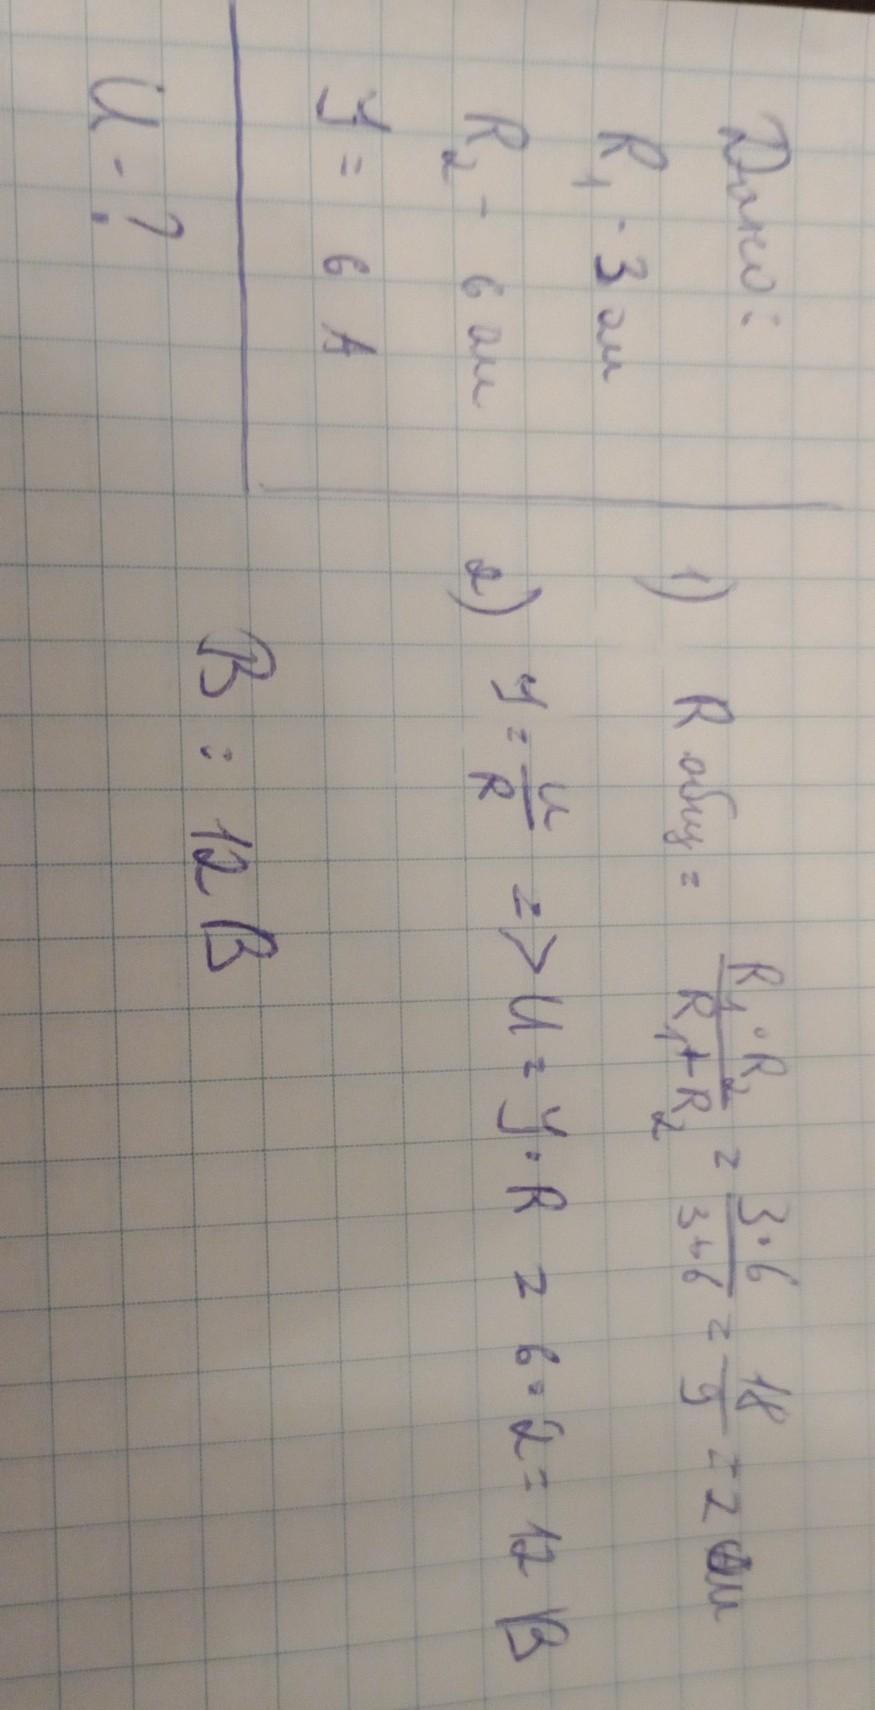 Дано:
R₁ - 3 ом
R₂ - 6 ом
У = 6 А
U - ?
1) R общ = R₁·R₂ / R₁+R₂ = 3·6 / 3+6 = 18 / 9 = 2 ом
2) У = U / R => U = У·R = 6·2 = 12 В
В : 12 В